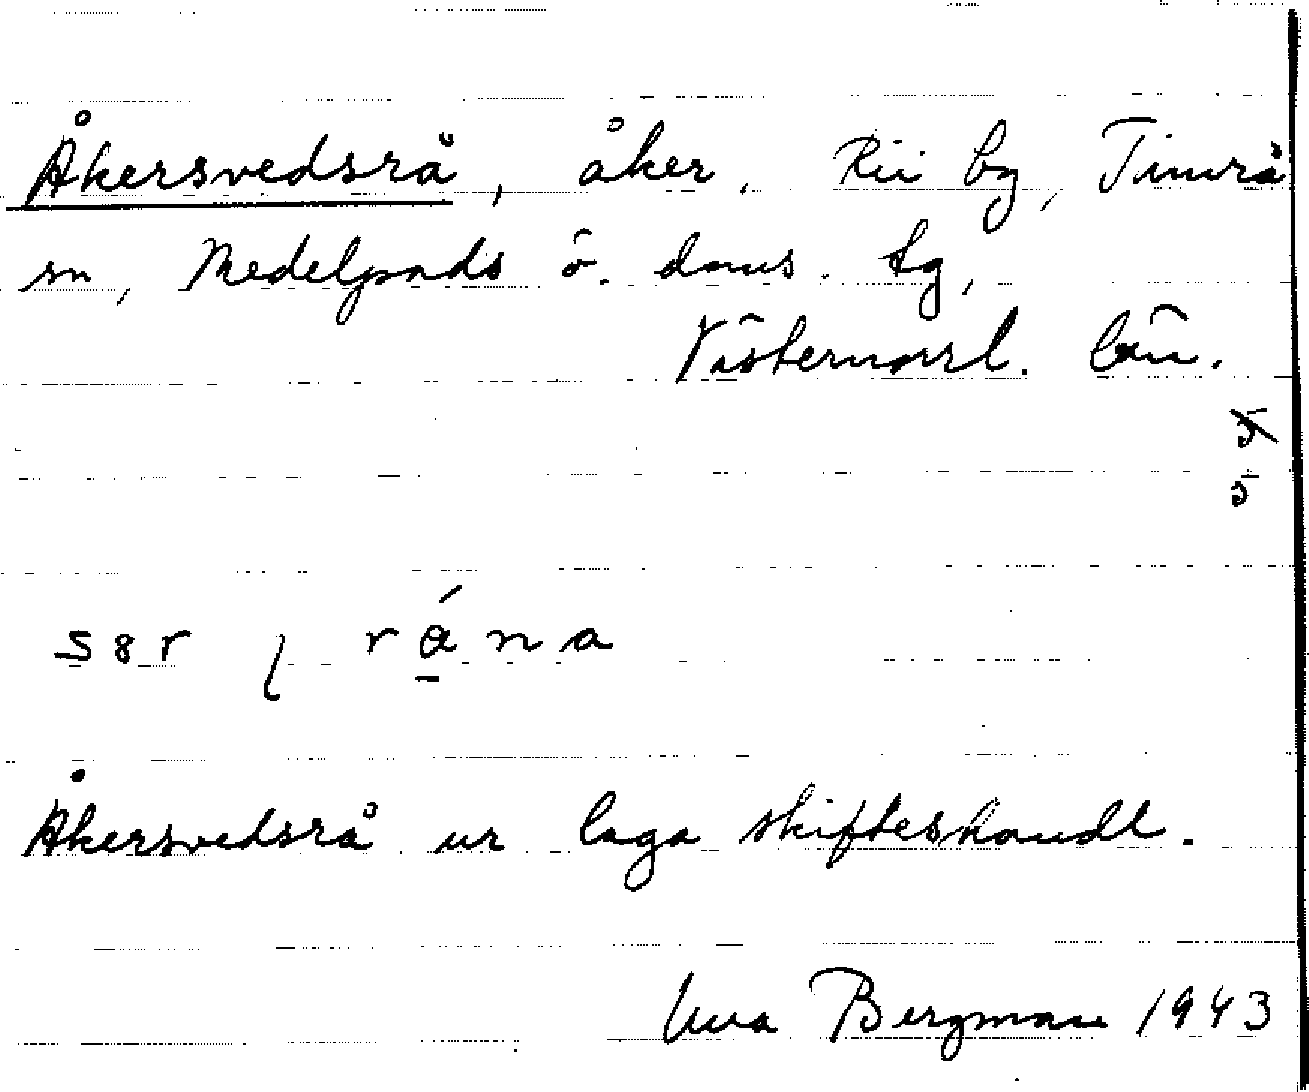 Åkersvedsrå, åker, Rii by, Timrå
sn, Medelpads ö. doms. tg,
Västernorrl. län.
Åkersvedsrå ur laga skifteshandl.
Bergman 1943